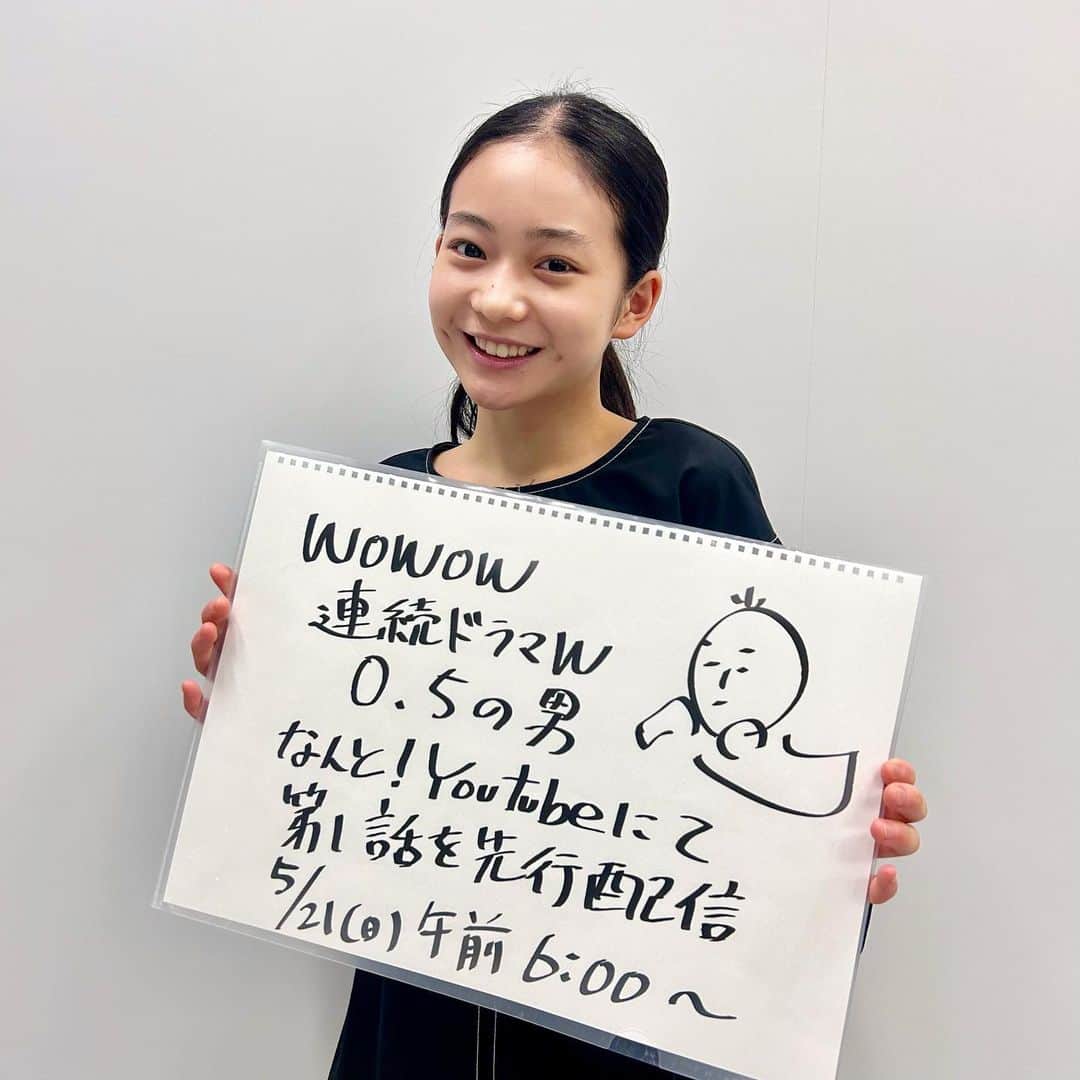 WOWOW
連続ドラマW
0.5の男
なんと!Youtubeにて
第1話を先行配信
5/21(日)午前6:00〜